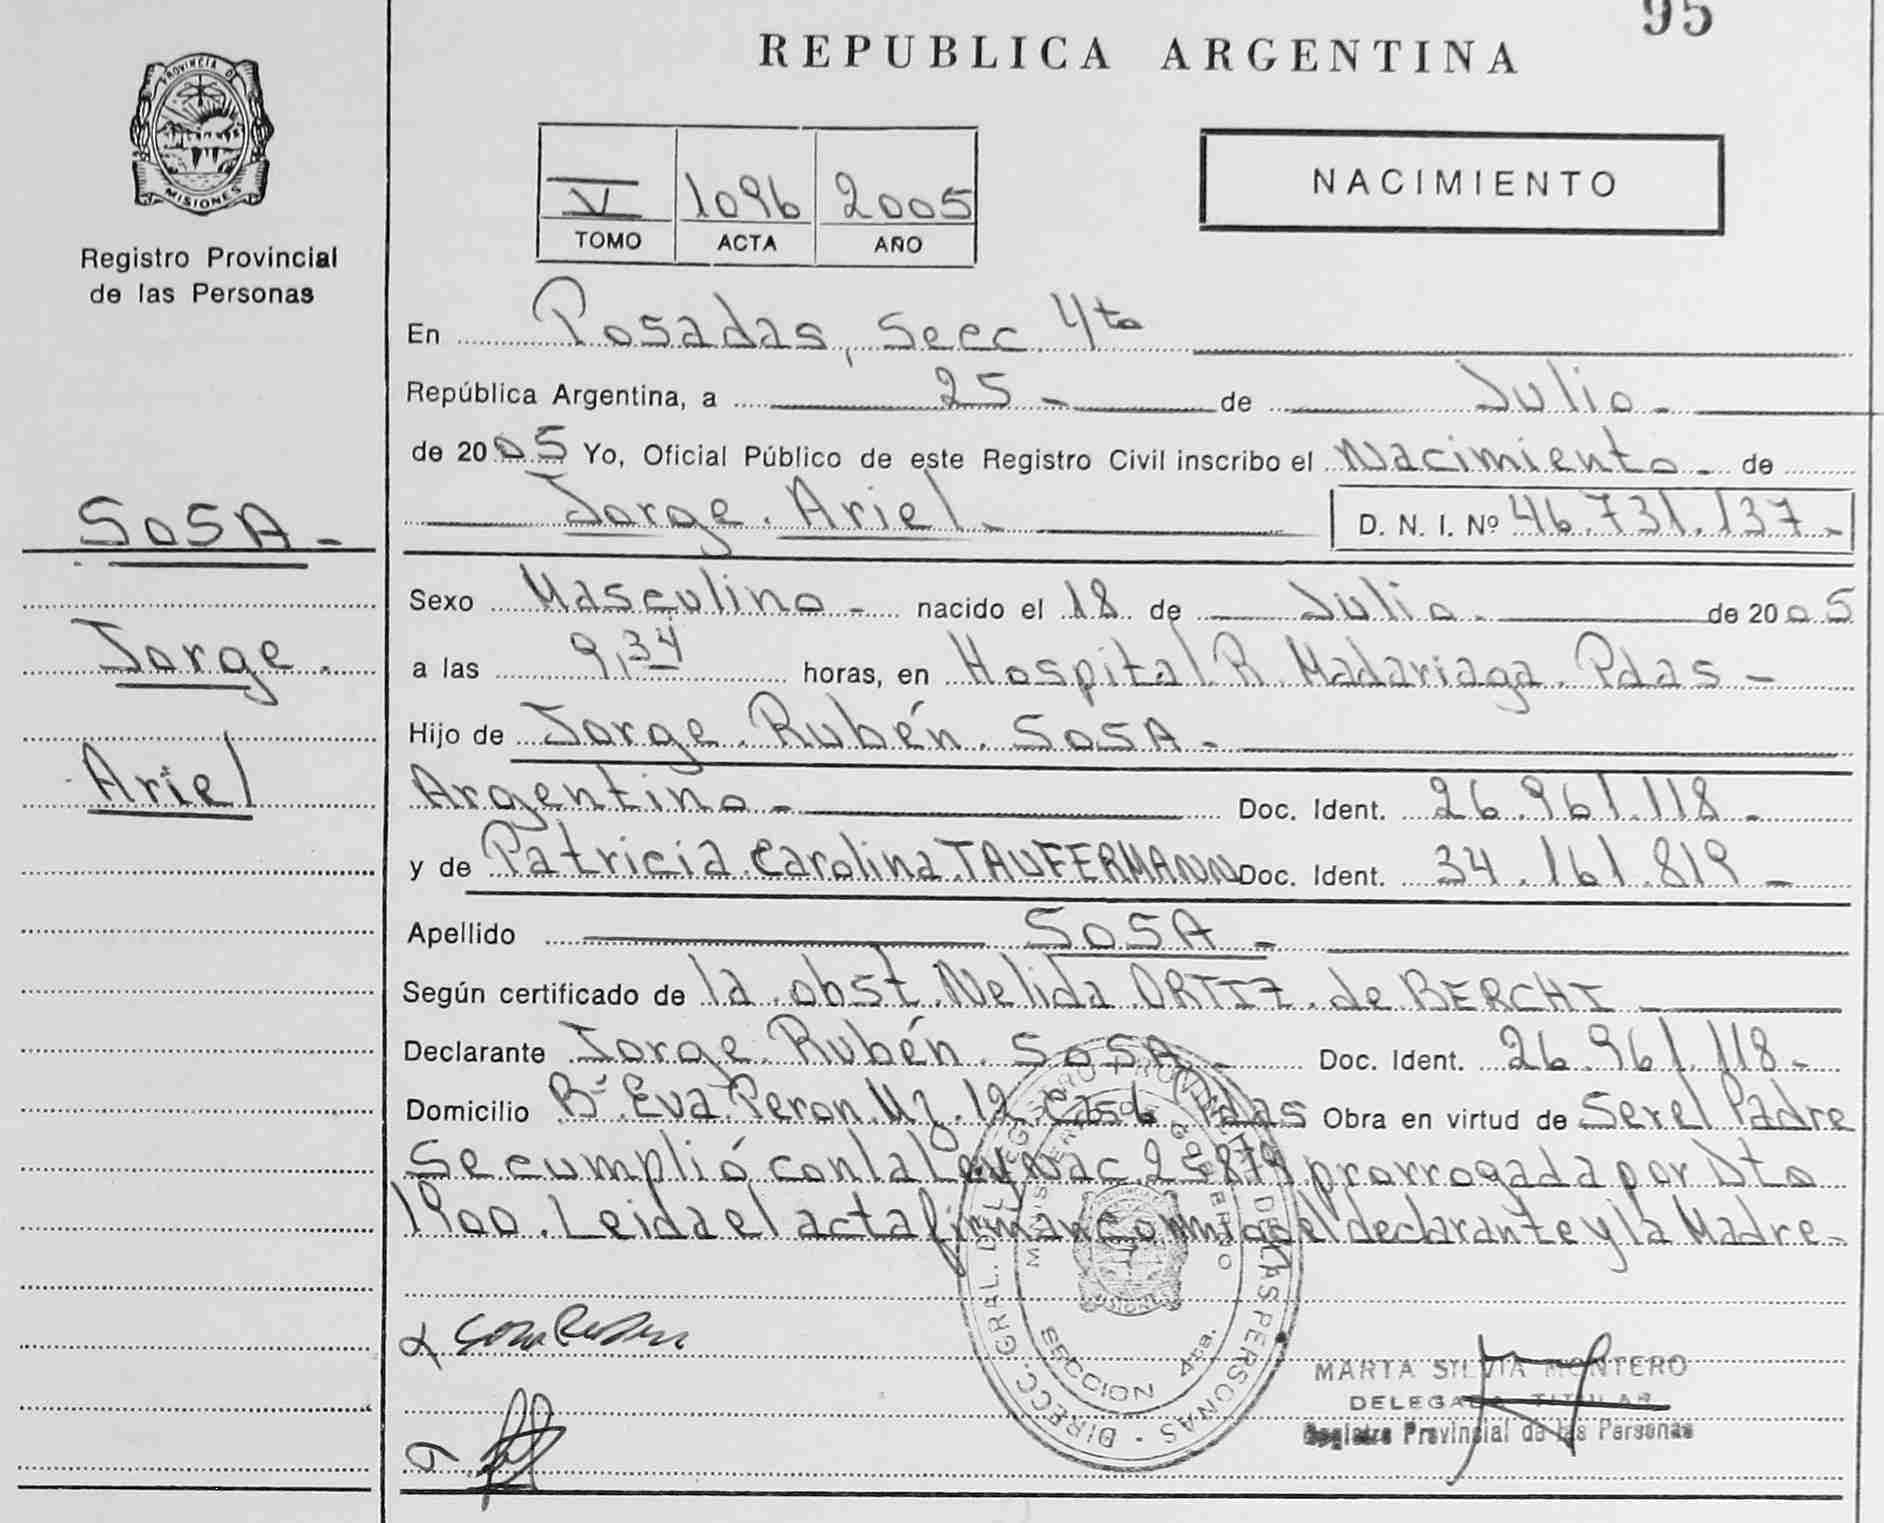 95
REPUBLICA ARGENTINA
PROVINCIA DE
MISIONES
Registro Provincial
de las Personas
V 1096 2005
TOMO ACTA AÑO
NACIMIENTO
En Posadas, Secc 4ta
República Argentina, a 25 - de Julio -
de 2005 Yo, Oficial Público de este Registro Civil inscribo el Nacimiento - de
Jorge Ariel - D. N. I. Nº 46.731.137 -
SOSA -
Jorge
Ariel
Sexo Masculino - nacido el 18 de Julio - de 2005
a las 9,34 horas, en Hospital R. Madariaga. Pdas -
Hijo de Jorge Rubén SOSA -
Argentino - Doc. Ident. 26.961.118 -
y de Patricia Carolina TAUFERMANN Doc. Ident. 34.161.819 -
Apellido SOSA -
Según certificado de la obst. Nelida ORTIZ de BERCHI
Declarante Jorge Rubén SOSA - Doc. Ident. 26.961.118 -
Domicilio Bº Eva Peron Mz. 12 Pdas Obra en virtud de Ser el Padre
Se cumplió con la Ley Nac. prorrogada por Dto
1900. Leida el acta firman conmigo el declarante y la Madre -
DIRECC. GRAL. DEL REGISTRO PROVINCIAL DE LAS PERSONAS
SECCION 4ta.
MISIONES
MARTA SILVIA MONTERO
DELEGADA TITULAR
Registro Provincial de las Personas